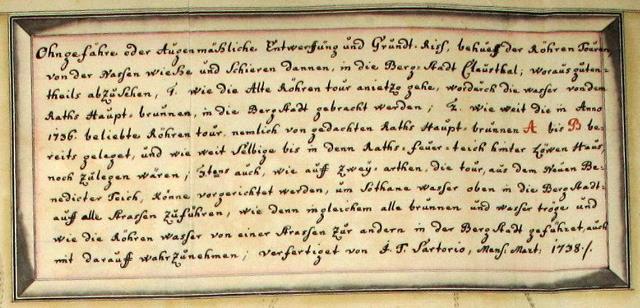 Ohngefahre oder Augenmäßliche Entwerffung und Grundt-Riß, behueff der Röhren Touren
von der Nassen wieße und Schieren Dannen, in die Berg-Stadt Clausthal; woraus guten-
theils abzusehen, 1. wie die Alte Röhren tour anietzo gehe, wordurch die wasser von dem
Raths Haupt-brunnen, in die BergStadt gebracht werden; 2. wie weit die in Anno
1736. beliebte Röhren tour, nemlich von gedachten Raths Haupt-brunnen A bis B be-
reits geleget, und wie weit selbige bis in denn Raths-feuer-teich hinter Löwen Hauß,
noch zulegen wären; 3tens auch, wie auff zwey-arthen, die tour, aus den Neuen Be-
nedicter Teich, könne vorgerichtet werden, um Sothane wasser oben in die BergStadt-
auff alle strassen zuführen, wie denn ingleichem alle brunnen und wasser tröge und
wie die Röhren wasser von einer strassen zur andern in der BergStadt geführet, auch
mit darauff wahrzunehmen; verfertiget von J. T. Sartorio, Mens. Mart. 1738./.